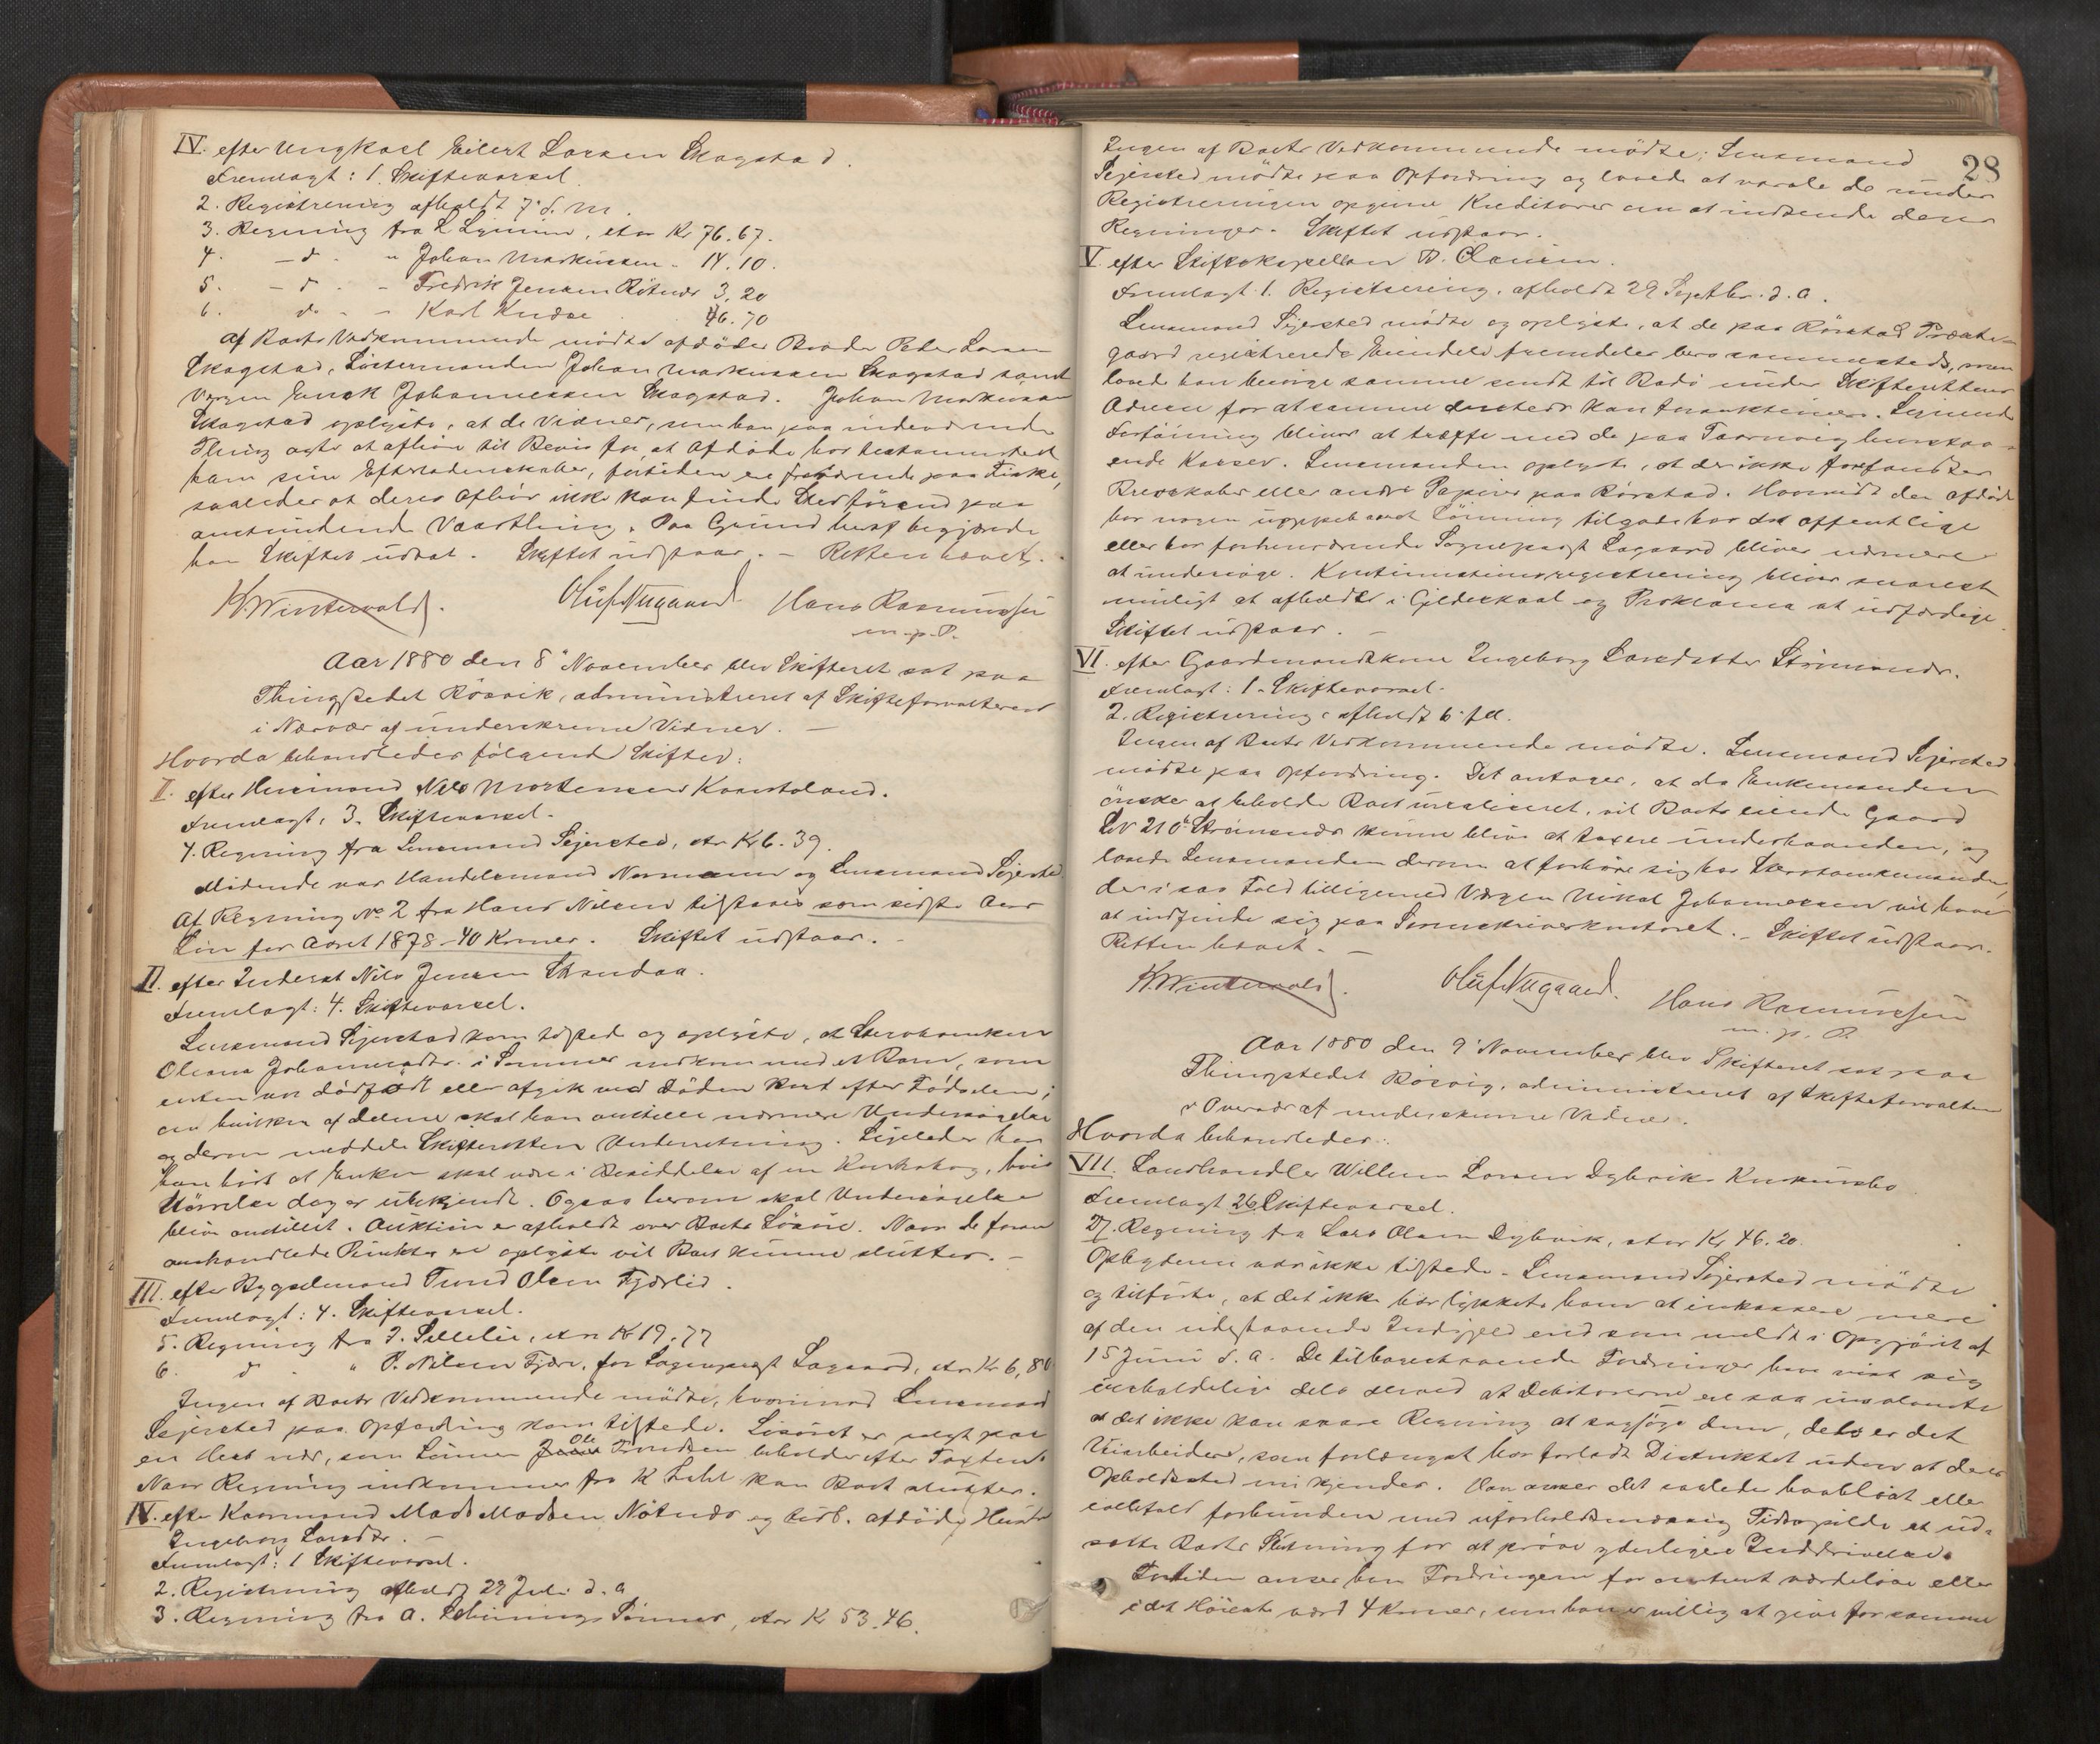 IV. efter Ungkarl Eilert Larsen Skagstad.
Fremlagt: 1. Skiftevarsel
2. Registrering afholdt 7' d. M.
3. Regning fra L , stor Kr 76.67.
4. - d - " Johan Markussen - 14.10.
5. - d - - Fredrik Jensen Rötnæs 3,20
6. do - - Karl Knudse . 46.70
Af Boets Vedkommende mødte afdødes Broder Peder Larsen
Skagstad, Söstermanden Johan Markussen Skagstad samt
Vergen Enok Johannessen Skagstad. Johan Markussen
Skagstad oplyste, at de Vidner, som han paa indeværende
Thing agter at afhöre til Bevis for, at Afdøde har testamenteret
ham sine Efterladenskaber, fortiden er fraværende paa Fiske,
saaledes at deres Afhör ikke kan finde Sted förend paa
anstundende Vaarthing. Paa Grund heraf begjærede
han Skiftet udsat. Skiftet udstaar. - Retten hævet. -
K. Wintervold. Oluf Nygaard Hans Rasmussen
m. p. P.
Aar 1880 den 8' November blev Skifteret sat paa
Thingstedet Rösvik, administreret af Skifteforvalteren
i Nærvær af underskrevne Vidner. -
Hvorda behandledes følgende Skifter:
I. efter Huusmand Nils Mortensen Kvarvoland.
Fremlagt, 3. Skiftevarsel.
4. Regning fra Lensmand Sejersted, stor Kr 6.39.
Mödende var Handelsmand Normann og Lensmand Sejersted.
Af Regning No 2 fra Hans Nilsen tilstaaes som sidste Aars
Lön for Aaret 1878 - 40 Kroner. Skiftet udstaar. -
II. efter Inderst Nils Jensen Strandaa.
Fremlagt: 4. Skiftevarsel.
Lensmand Sejersted kom tilsted og oplyste, at Stervboenken
Oleana Johannesdtr. i Sommer nedkom med et Barn, som
enten var dödfødt eller afgik ved Döden kort efter Födselen;
om hvilken af Delene skal han anstille nærmere Undersögelse
og derom meddele Skifteretten Underretning. Ligeledes har
han hört at Enken skal være i Besiddelse af en Kontrabog, hvis
Störrelse dog er ubekjendt. Ogsaa herom skal Undersögelse
blive anstillet. Auktion er afholdt over Boets Lösöre. Naar de foran
omhandlede Punkter er oplyste vil Boet kunne sluttes. -
III. efter Bygselmand Trond Olsen Fjærlid.
Fremlagt: 4. Skiftevarsel.
5. Regning fra J. Sellelie, stor Kr 19.77
6. d " P. Nilsen Fjære, for Sogneprest Lagaard, stor Kr 6,80
Ingen af Boets Vedkommende mødte, hvorimod Lensmand
Sejersted paa Opfordring kom tilstede. Lösöret er solgt paa
en Hest nær, som Sönnen Ole Trondsen beholder efter Taxten.
Naar Regning indkommer fra K kan Boet sluttes.
IV. efter Kaarmand Mads Madsen Nötnæs og tidl. afdöde Hustru
Ingeborg Larsdtr. -
Fremlagt: 1 Skiftevarsel.
2. Registrering afholdt 29 Juli d. A
3. Regning fra A. Schönings Sönner, stor Kr 53.46.
28
Ingen af Boets Vedkommende mödte; Lensmand
Sejersted mödte paa Opfordring og lovede at varsle de under
Registreringen opgivne Kreditorer om at indsende deres
Regninger. Skiftet udstaar.
V. efter Stiftskapellan D. Clausen.
Fremlagt 1. Registrering, afholdt 29 Septbr. d. A.
Lensmand Sejersted mödte og oplyste, at de paa Rörstad Præste-
gaard registrerede Eiendele fremdeles bero sammesteds, men
lovede han besörge samme sendt til Bodö under Skifterettens
Adresse for at samme dersteds kan forauktioneres. Lignende
Forföining bliver at træffe med de paa Taarnvig henstaa-
ende Kasser. Lensmanden oplyste, at der ikke forefandtes
Brevskaber eller andre Papirer paa Rörstad. Hvorvidt den Afdöde
har nogen uoppebaaret Lönning tilgode hos det offentlige
eller hos forhenværende Sogneprest Lagaard bliver nærmere
at undersöge. Kontinuationsregistrering bliver snarest
muligt at afholde i Gildeskaal og Proklama at udfærdige.
Skiftet udstaar. -
VI. efter Gaardmandskone Ingeborg Larsdatter Strömsnæs.
Fremlagt: 1. Skiftevarsel.
2. Registrering, afholdt 6' ds.
Ingen af Boets Vedkommende mödte. Lensmand Sejersted
mödte paa Opfordring. Det antages, at da Enkemanden
önsker at beholde Boet urealiseret, vil Boets eiende Gaard
LN 210 Strömsnæs kunne blive at taxere underhaanden, og
lovede Lensmanden derom at forhöre sig hos Stervboenkemanden,
der i saa Fald tilligemed Vergen Mikal Johannessen vil have
at indfinde sig paa Sorenskriverkontoret. - Skiftet udstaar.
Retten hævet. -
K. Wintervold. Oluf Nygaard. Hans Rasmussen
m. p. P.
Aar 1880 den 9' November blev Skifteret sat paa
Thingstedet Rösvig, administreret af Skifteforvalteren
i Overvær af underskrevne Vidner.
Hvorda behandledes:
VII. Landhandler Willum Larsen Dybviks Konkursbo
Fremlagt 26 Skiftevarsel.
27. Regning fra Lars Olsen Dybvik, stor Kr 46.20.
Opbyderen var ikke tilstede. Lensmand Sejersted mödte
og tilförte, at det ikke har lykkets ham at inkassere mere
af den udestaaende Indgjeld end som meldt i Opgjöret af
15 Juni d. A. De tilbagestaaende Fordringer have vist sig
uerholdelige dels derved at Debitorerne ere saa insolvente
at det ikke kan svare Regning at sagsöge dem, dels er det
Veiarbeidere, som forlængst har forladt Distriktet uden at deres
Opholdssted nu kjendes. Han anser det saaledes haablöst eller
iallefald forbunden med uforholdsmæssig Tidsspilde at ud-
sætte Boets Slutning for at pröve yderligere Inddrivelse.
Fortiden anser han Fordringerne for omtrent værdelöse eller
i det Höieste værd 4 Kroner, som han er villig at give for samme